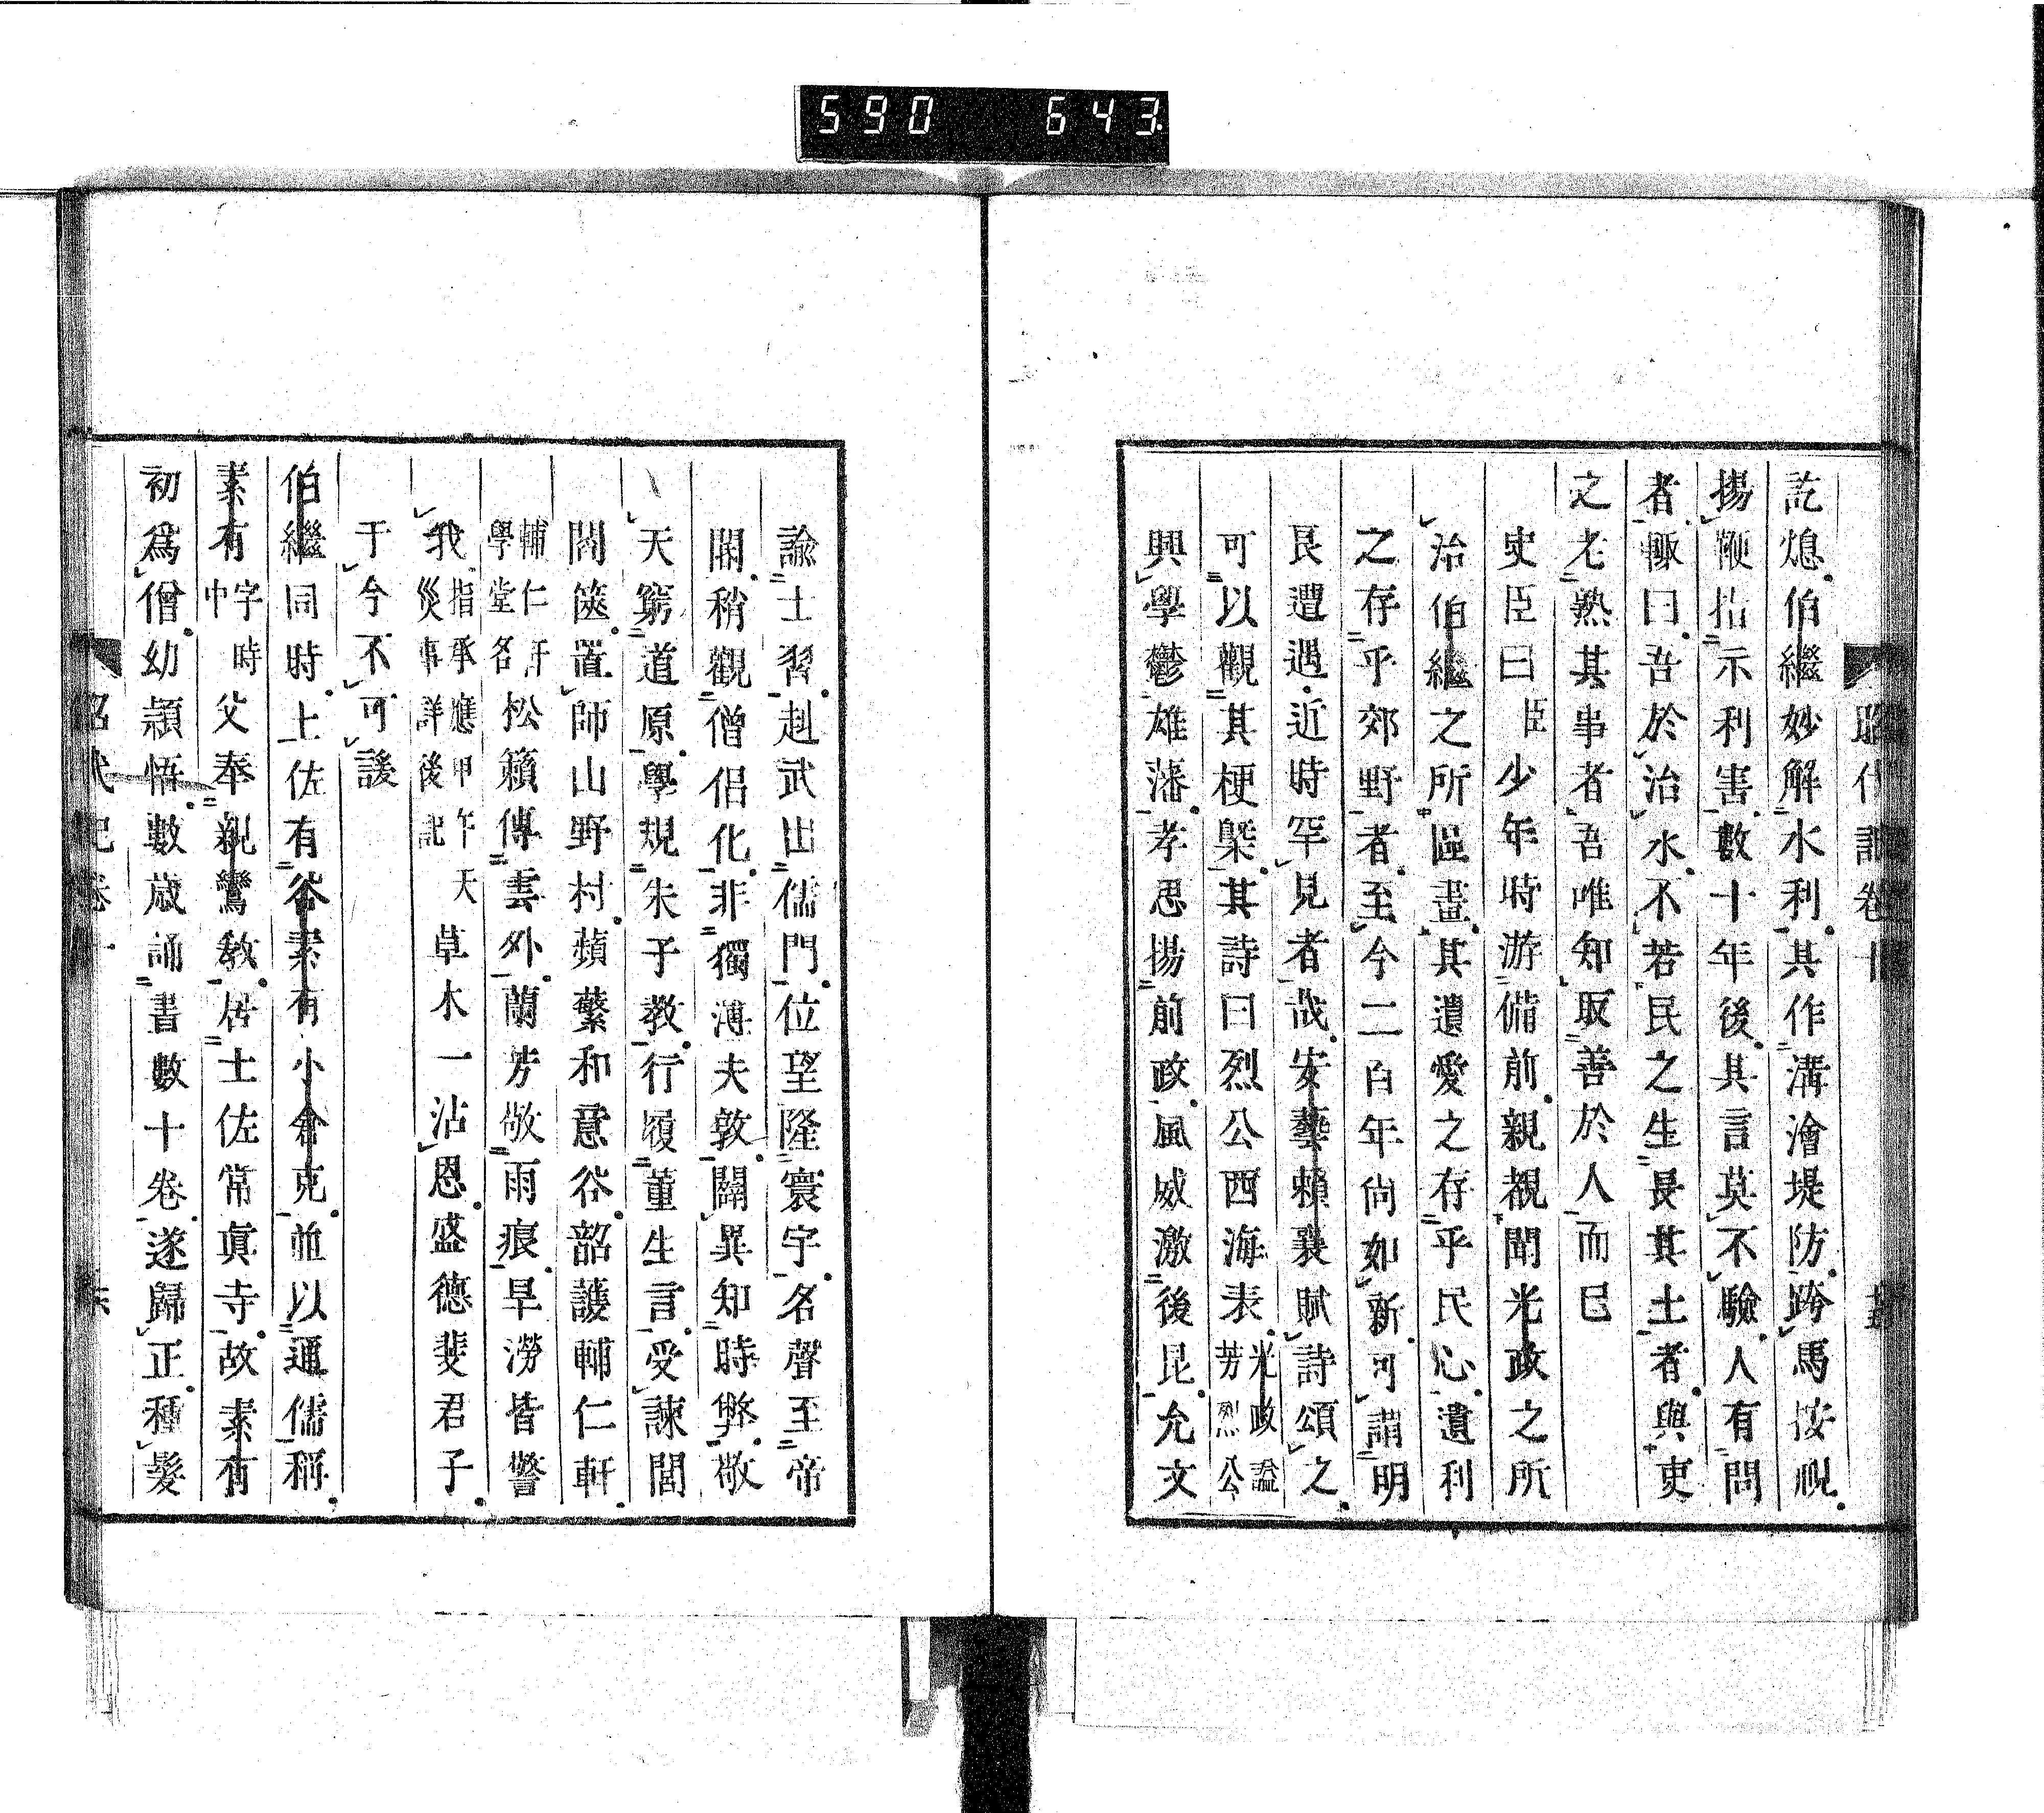 590 643
訖熄伯繼妙解水利其作溝澮堤防跨馬按視
揚鞭指示利害數十年後其言莫不驗人有問
者輙曰吾於治水不若民之生長其土者與吏
之老熟其事者吾唯知取善於人而已
史臣曰臣少年時游備前親覩聞光政之所
治伯繼之所區畫其遺愛之存乎民心遺利
之存乎郊野者至今二百年尙如新可謂明
良遭遇近時罕見者哉安藝賴襄賦詩頌之
可以觀其梗槩其詩曰烈公西海表光政謚芳烈公
興學鬱雄藩孝思揚前政風威激後昆允文
諭士習赳武出儒門位望隆寰宇名聲至帝
閽稍觀僧侶化非獨薄夫敦闢異知時弊敬
天窮道原學規朱子敎行履董生言受諫閭
閻篋置師山野村蘋蘩和意谷韶護輔仁軒
輔仁軒學堂名松籟傳雲外蘭芳敬雨痕旱澇皆警
我指承應甲午天災事詳後記草木一沾恩盛德斐君子
于今不可諼
伯繼同時上佐有谷素有小倉克並以通儒稱
素有字時中父奉親鸞敎居土佐常眞寺故素有
初爲僧幼穎悟數歲誦書數十卷遂歸正種髮